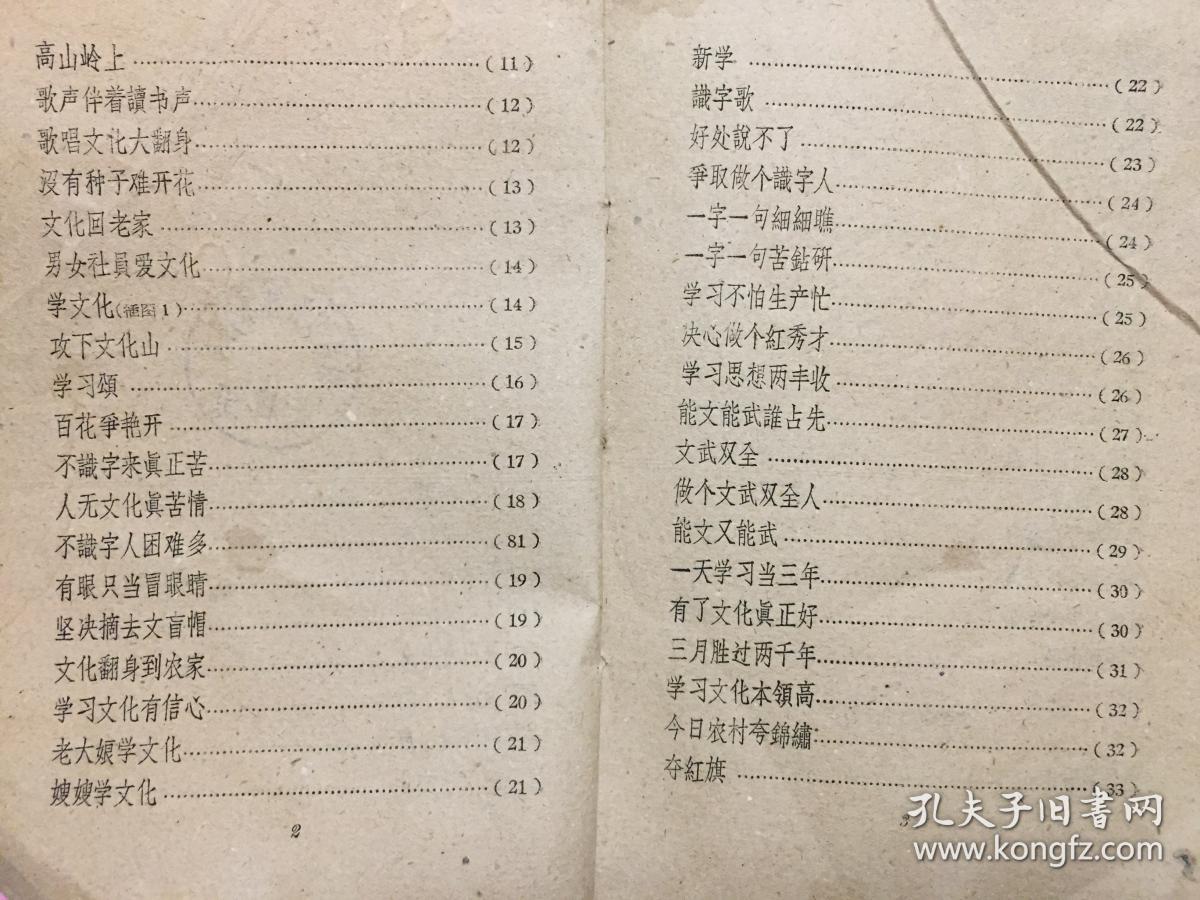 高山岭上……(11)
歌声伴着讀书声……(12)
歌唱文化大翻身……(12)
沒有种子难开花……(13)
文化回老家……(13)
男女社員爱文化……(14)
学文化(插图1)……(14)
攻下文化山……(15)
学习頌……(16)
百花爭艳开……(17)
不識字来眞正苦……(17)
人无文化眞苦情……(18)
不識字人困难多……(81)
有眼只当冒眼晴……(19)
坚决摘去文盲帽……(19)
文化翻身到农家……(20)
学习文化有信心……(20)
老大娘学文化……(21)
嫂嫂学文化……(21)
2
新学……(22)
識字歌……(22)
好处說不了……(23)
爭取做个識字人……(24)
一字一句細細瞧……(24)
一字一句苦鉆研……(25)
学习不怕生产忙……(25)
决心做个紅秀才……(26)
学习思想两丰收……(26)
能文能武誰占先……(27)
文武双全……(28)
做个文武双全人……(28)
能文又能武……(29)
一天学习当三年……(30)
有了文化眞正好……(30)
三月胜过两千年……(31)
学习文化本領高……(32)
今日农村夸錦繡……(32)
夺紅旗……(33)
3
孔夫子旧书网
www.kongfz.com